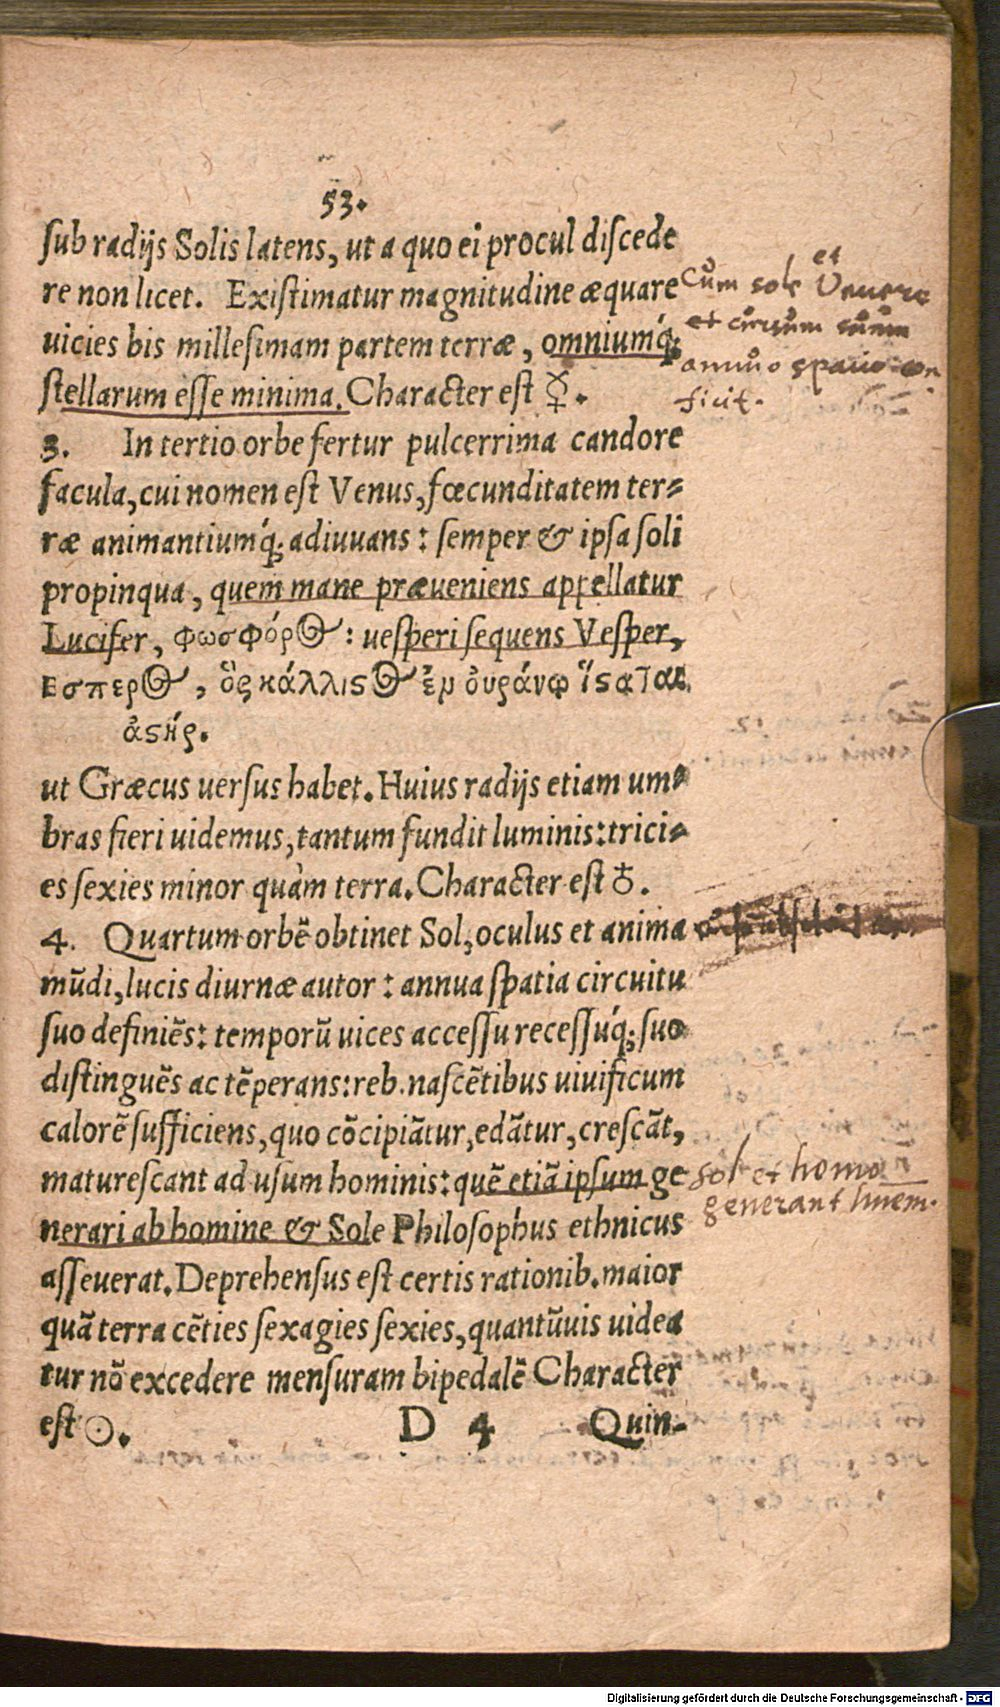 53.
sub radijs Solis latens, ut a quo ei procul discede
re non licet. Existimatur magnitudine æquare
uicies bis millesimam partem terræ, omniumq́;
stellarum esse minima. Character est ☿.
Cum sole et Venere
et circum suum
annuo spatio con
ficit.
3. In tertio orbe fertur pulcerrima candore
facula, cui nomen est Venus, fœcunditatem ter-
ræ animantiumq́; adiuuans: semper & ipsa soli
propinqua, quem mane præueniens appellatur
Lucifer, φωσφόρος: uesperi sequens Vesper,
Εσπερος, ὃς κάλλιστος ἐν οὐράνῳ ἵσταται
ἀστήρ.
ut Græcus uersus habet. Huius radijs etiam um-
bras fieri uidemus, tantum fundit luminis: trici-
es sexies minor quàm terra. Character est ♁.
4. Quartum orbē obtinet Sol, oculus et anima
mūdi, lucis diurnæ autor: annua spatia circuitu
suo definiēs: temporū uices accessu recessuq́; suo
distinguēs ac tēperans: reb. nascētibus uiuificum
calorē sufficiens, quo cōcipiātur, edātur, crescāt,
maturescant ad usum hominis: quē etiā ipsum ge
nerari ab homine & Sole Philosophus ethnicus
asseuerat. Deprehensus est certis rationib. maior
quā terra cēties sexagies sexies, quantūuis uidea
tur nō excedere mensuram bipedalē Character
est ☉.
sol et homo
generant hominem.
D 4 Quin-
Digitalisierung gefördert durch die Deutsche Forschungsgemeinschaft - DFG